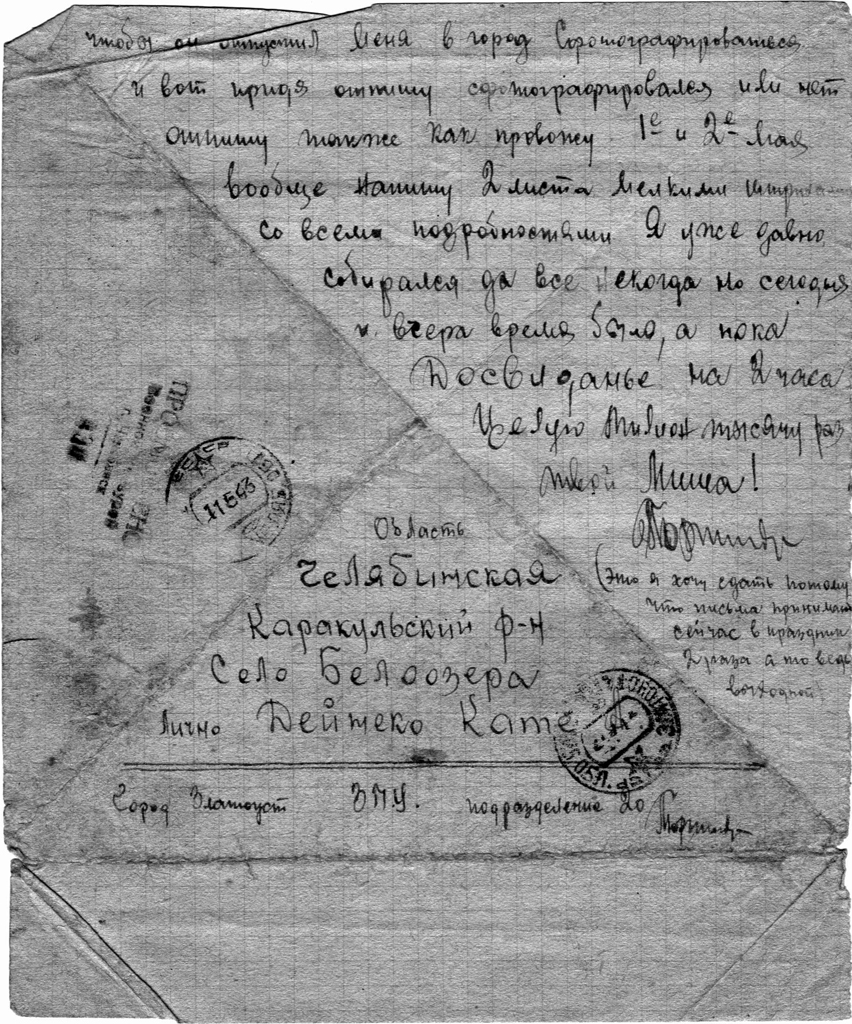 чтобы он отпустил меня в город Сфотографироваться
и вот придя отпишу сфотографировался или нет
отпишу также как провожу 1е и 2е Мая
вообще напишу 2 листа мелкими
со всеми подробностями Я уже давно
собирался да все некогда но сегодня
и вчера время было, а пока
Досвиданье на 2 часа
Целую Милион тысячу раз
твой Миша!
(Это я хочу сдать потому
что письма принимают
сейчас в праздник
2 раза а то ведь
выходной)
11 5 43
Область
Челябинская
Каракульский р-н
Село Белоозера
Лично Дейнеко Кате
Город Златоуст ЗПУ. подразделение 20